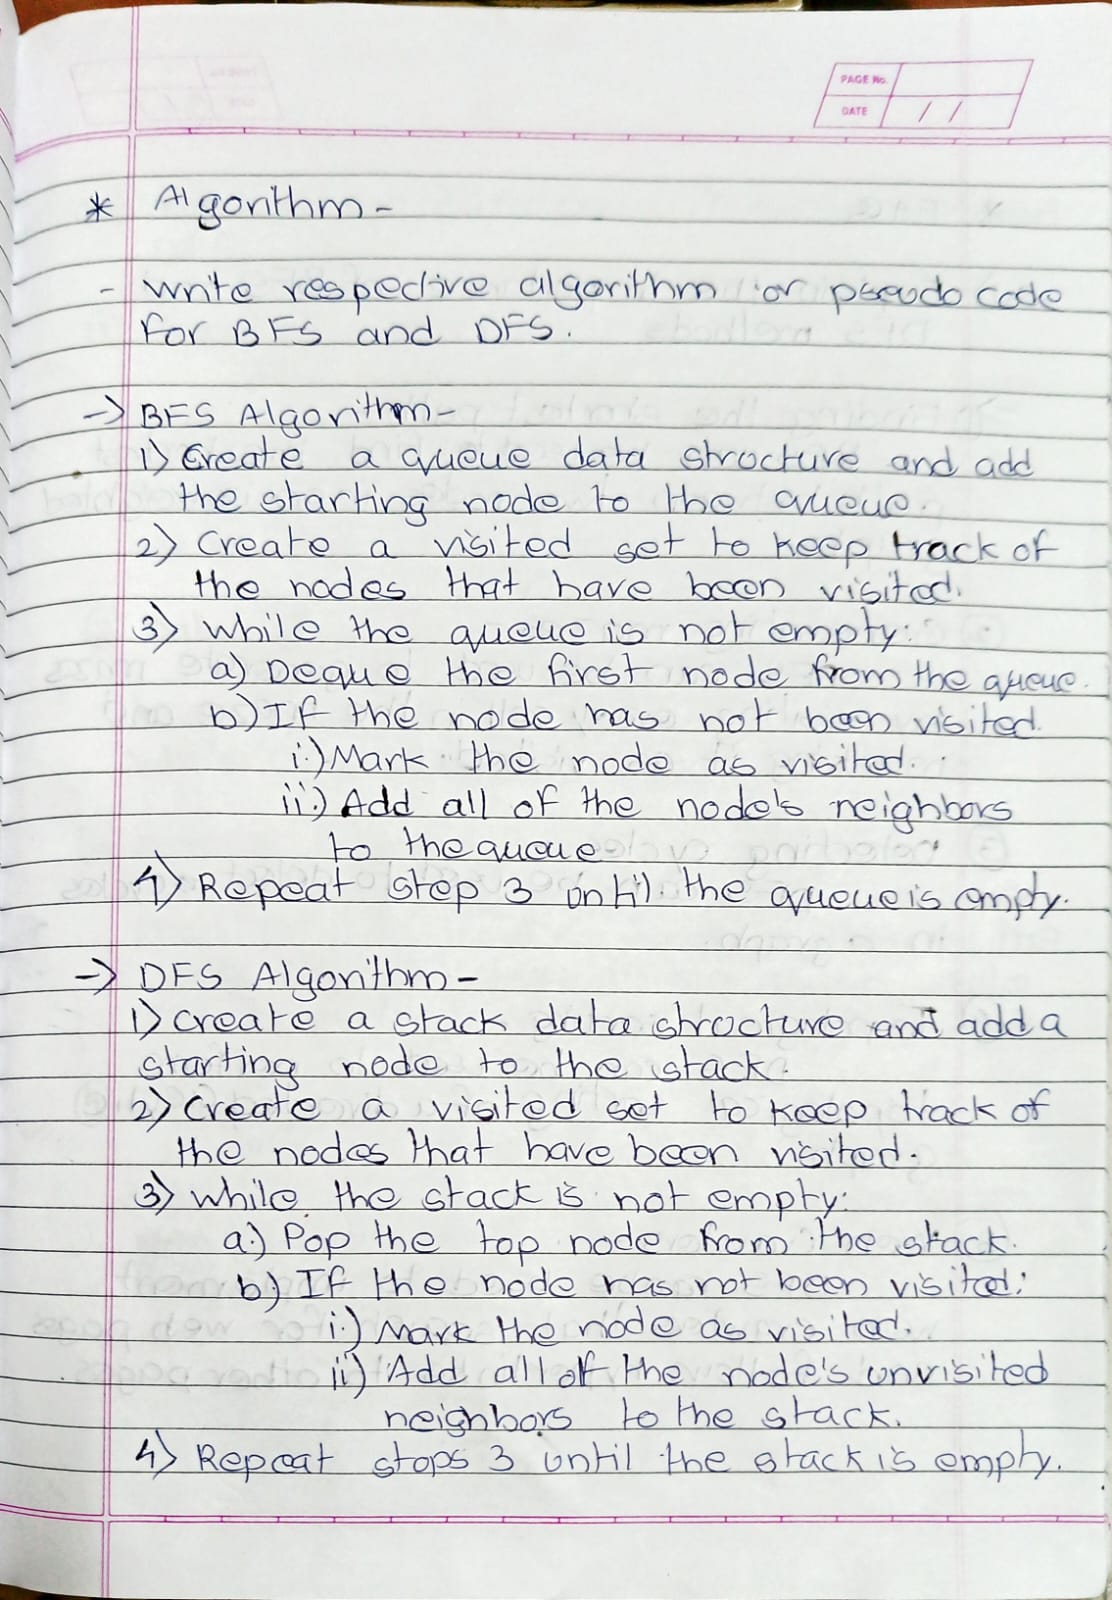 PAGE No.
DATE / /
* Algorithm -
- Write respective algorithm or pseudo code
for BFS and DFS.
-> BFS Algorithm -
1) Create a queue data structure and add
the starting node to the queue.
2) Create a visited set to keep track of
the nodes that have been visited.
3) While the queue is not empty:
a) Deque the first node from the queue.
b) If the node has not been visited.
i) Mark the node as visited.
ii) Add all of the node's neighbors
to the queue
4) Repeat step 3 until the queue is empty.
-> DFS Algorithm -
1) Create a stack data structure and add a
starting node to the stack.
2) Create a visited set to keep track of
the nodes that have been visited.
3) While the stack is not empty:
a) Pop the top node from the stack.
b) If the node has not been visited:
i) Mark the node as visited.
ii) Add all of the node's unvisited
neighbors to the stack.
4) Repeat stops 3 until the stack is empty.